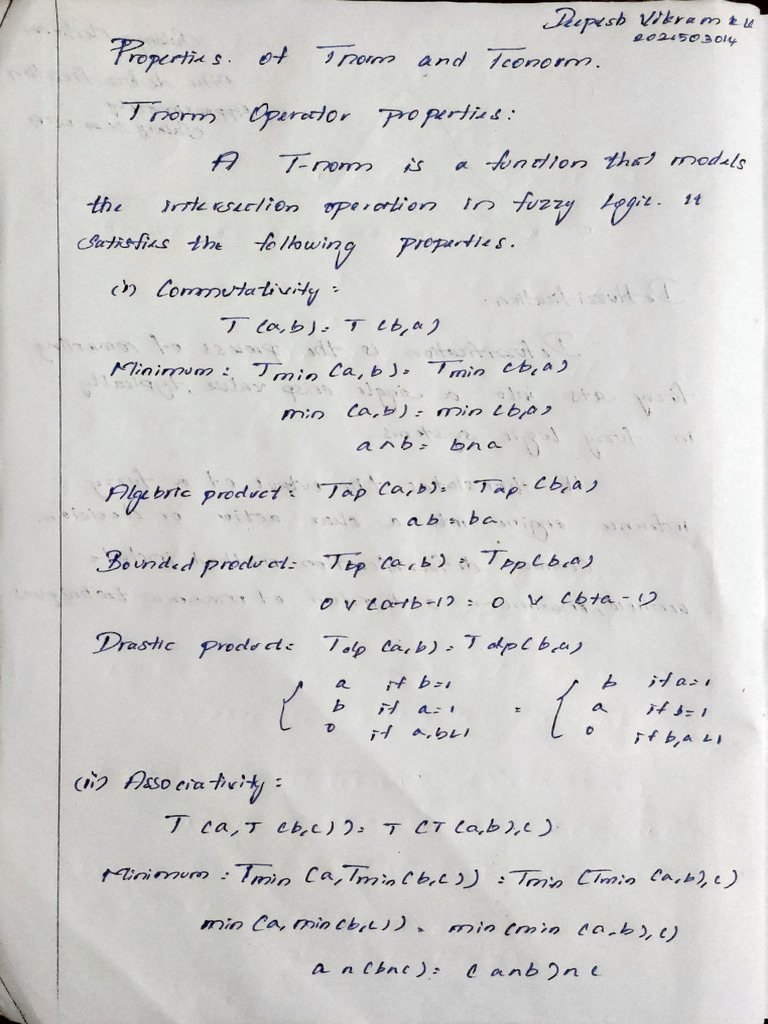 Deepesh Vikram
2021503014
Properties. of Tnorm and Tconorm.
Tnorm Operator properties:
A T-norm is a function that models
the intersection operation in fuzzy logic. It
satisfies the following properties.
(i) Commutativity:
T(a,b) = T(b,a)
Minimum: Tmin(a,b) = Tmin(b,a)
min(a,b) = min(b,a)
a∧b = b∧a
Algebric product: Tap(a,b) = Tap(b,a)
ab = ba
Bounded product: Tbp(a,b) = Tbp(b,a)
0 ∨ (a+b-1) = 0 ∨ (b+a-1)
Drastic product: Tdp(a,b) = Tdp(b,a)
{ a if b=1 { b if a=1
b if a=1 = a if b=1
0 if a,b<1 0 if b,a<1
(ii) Associativity:
T(a,T(b,c)) = T(T(a,b),c)
Minimum: Tmin(a,Tmin(b,c)) = Tmin(Tmin(a,b),c)
min(a,min(b,c)) = min(min(a,b),c)
a∧(b∧c) = (a∧b)∧c